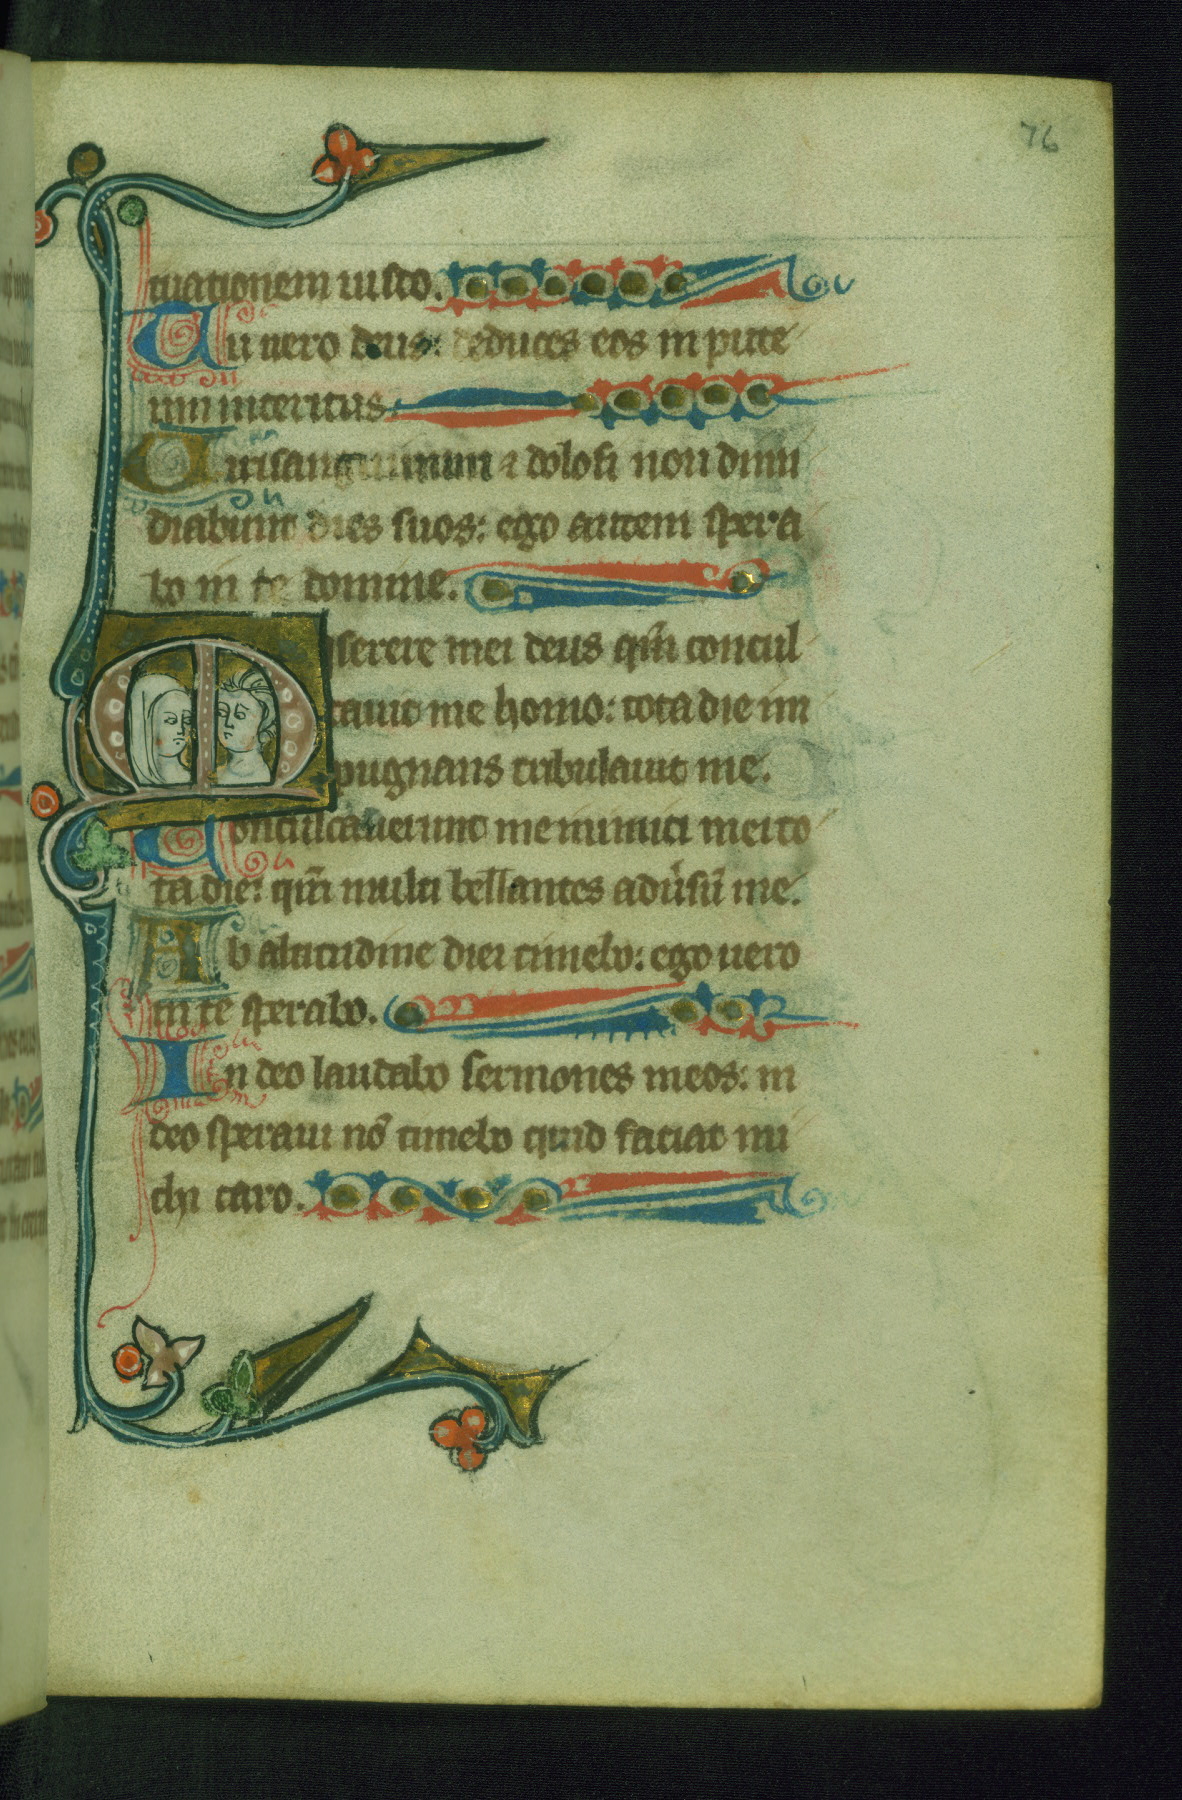 76
tuationem iusto.
Tu uero deus: deduces eos in pute
um interitus
Uiri sanguinum ⁊ dolosi non dimi
diabunt dies suos: ego autem spera
bo in te domine.
Miserere mei deus qm̄ concul
cauit me homo: tota die im
pugnans tribulauit me.
Conculcauerunt me inimici mei to
ta die: qm̄ multi bellantes aduˀsū me.
Ab altitudine diei timebo: ego uero
in te sperabo.
In deo laudabo sermones meos: in
deo speraui nō timebo quid faciat mi
chi caro.